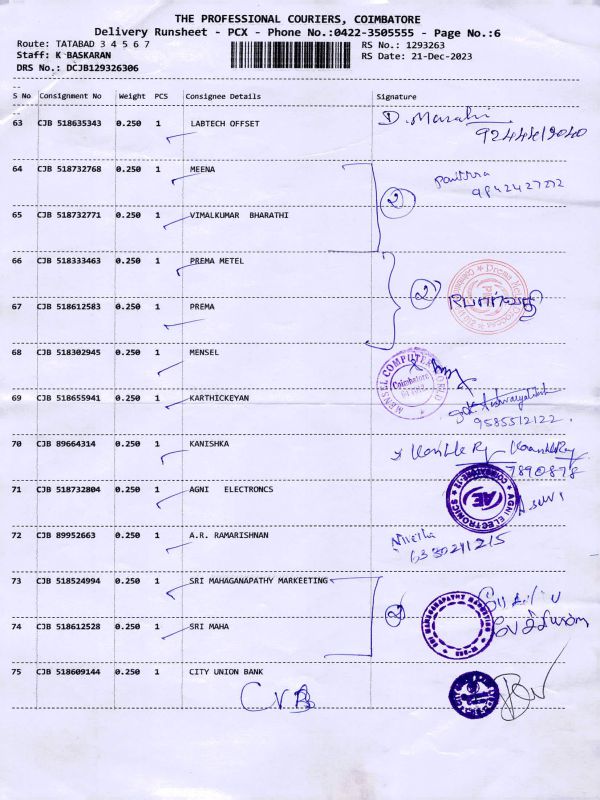 THE PROFESSIONAL COURIERS, COIMBATORE
Delivery Runsheet - PCX - Phone No.:0422-3505555 - Page No.:6
Route: TATABAD 3 4 5 6 7
RS No.: 1293263
Staff: K BASKARAN
RS Date: 21-Dec-2023
DRS No.: DCJB129326306
S No Consignment No Weight PCS Consignee Details Signature
63 CJB 518635343 0.250 1 LABTECH OFFSET
64 CJB 518732768 0.250 1 MEENA
2
9842427272
65 CJB 518732771 0.250 1 VIMALKUMAR BHARATHI
66 CJB 518333463 0.250 1 PREMA METEL
2
67 CJB 518612583 0.250 1 PREMA
68 CJB 518302945 0.250 1 MENSEL
MENSEL COMPUTER WORLD
Coimbatore
69 CJB 518655941 0.250 1 KARTHICKEYAN
9585512122
70 CJB 89664314 0.250 1 KANISHKA
7890878
71 CJB 518732804 0.250 1 AGNI ELECTRONCS
AGNI ELECTRONICS
COIMBATORE-12
AE
72 CJB 89952663 0.250 1 A.R. RAMARISHNAN
Nivetha
6330241215
73 CJB 518524994 0.250 1 SRI MAHAGANAPATHY MARKEETING
2
SRI MAHAGANAPATHY MARKETING
74 CJB 518612528 0.250 1 SRI MAHA
75 CJB 518609144 0.250 1 CITY UNION BANK
CVB